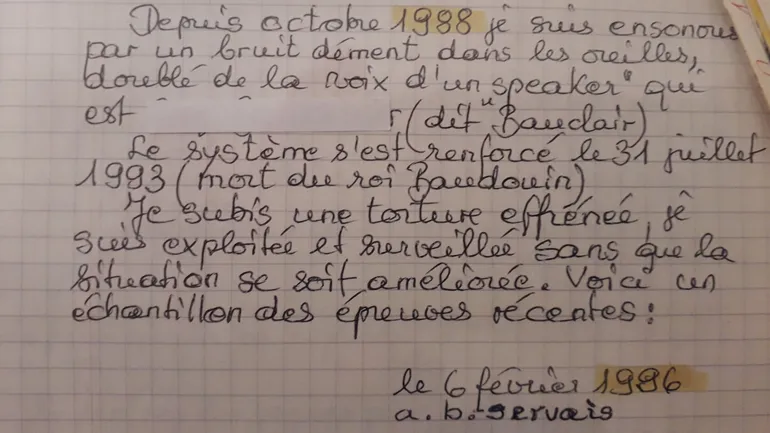 Depuis octobre 1988 je suis ensonous
par un bruit dément dans les oreilles,
doublé de la voix d'un speaker" qui
est r (dit "Bauclair)
Le système s'est renforcé le 31 juillet
1993 (mort du roi Baudouin)
Je subis une torture effrénée, je
suis exploitée et surveillée sans que la
situation se soit améliorée. Voici un
échantillon des épreuves récentes :
le 6 février 1996
a. b. servais